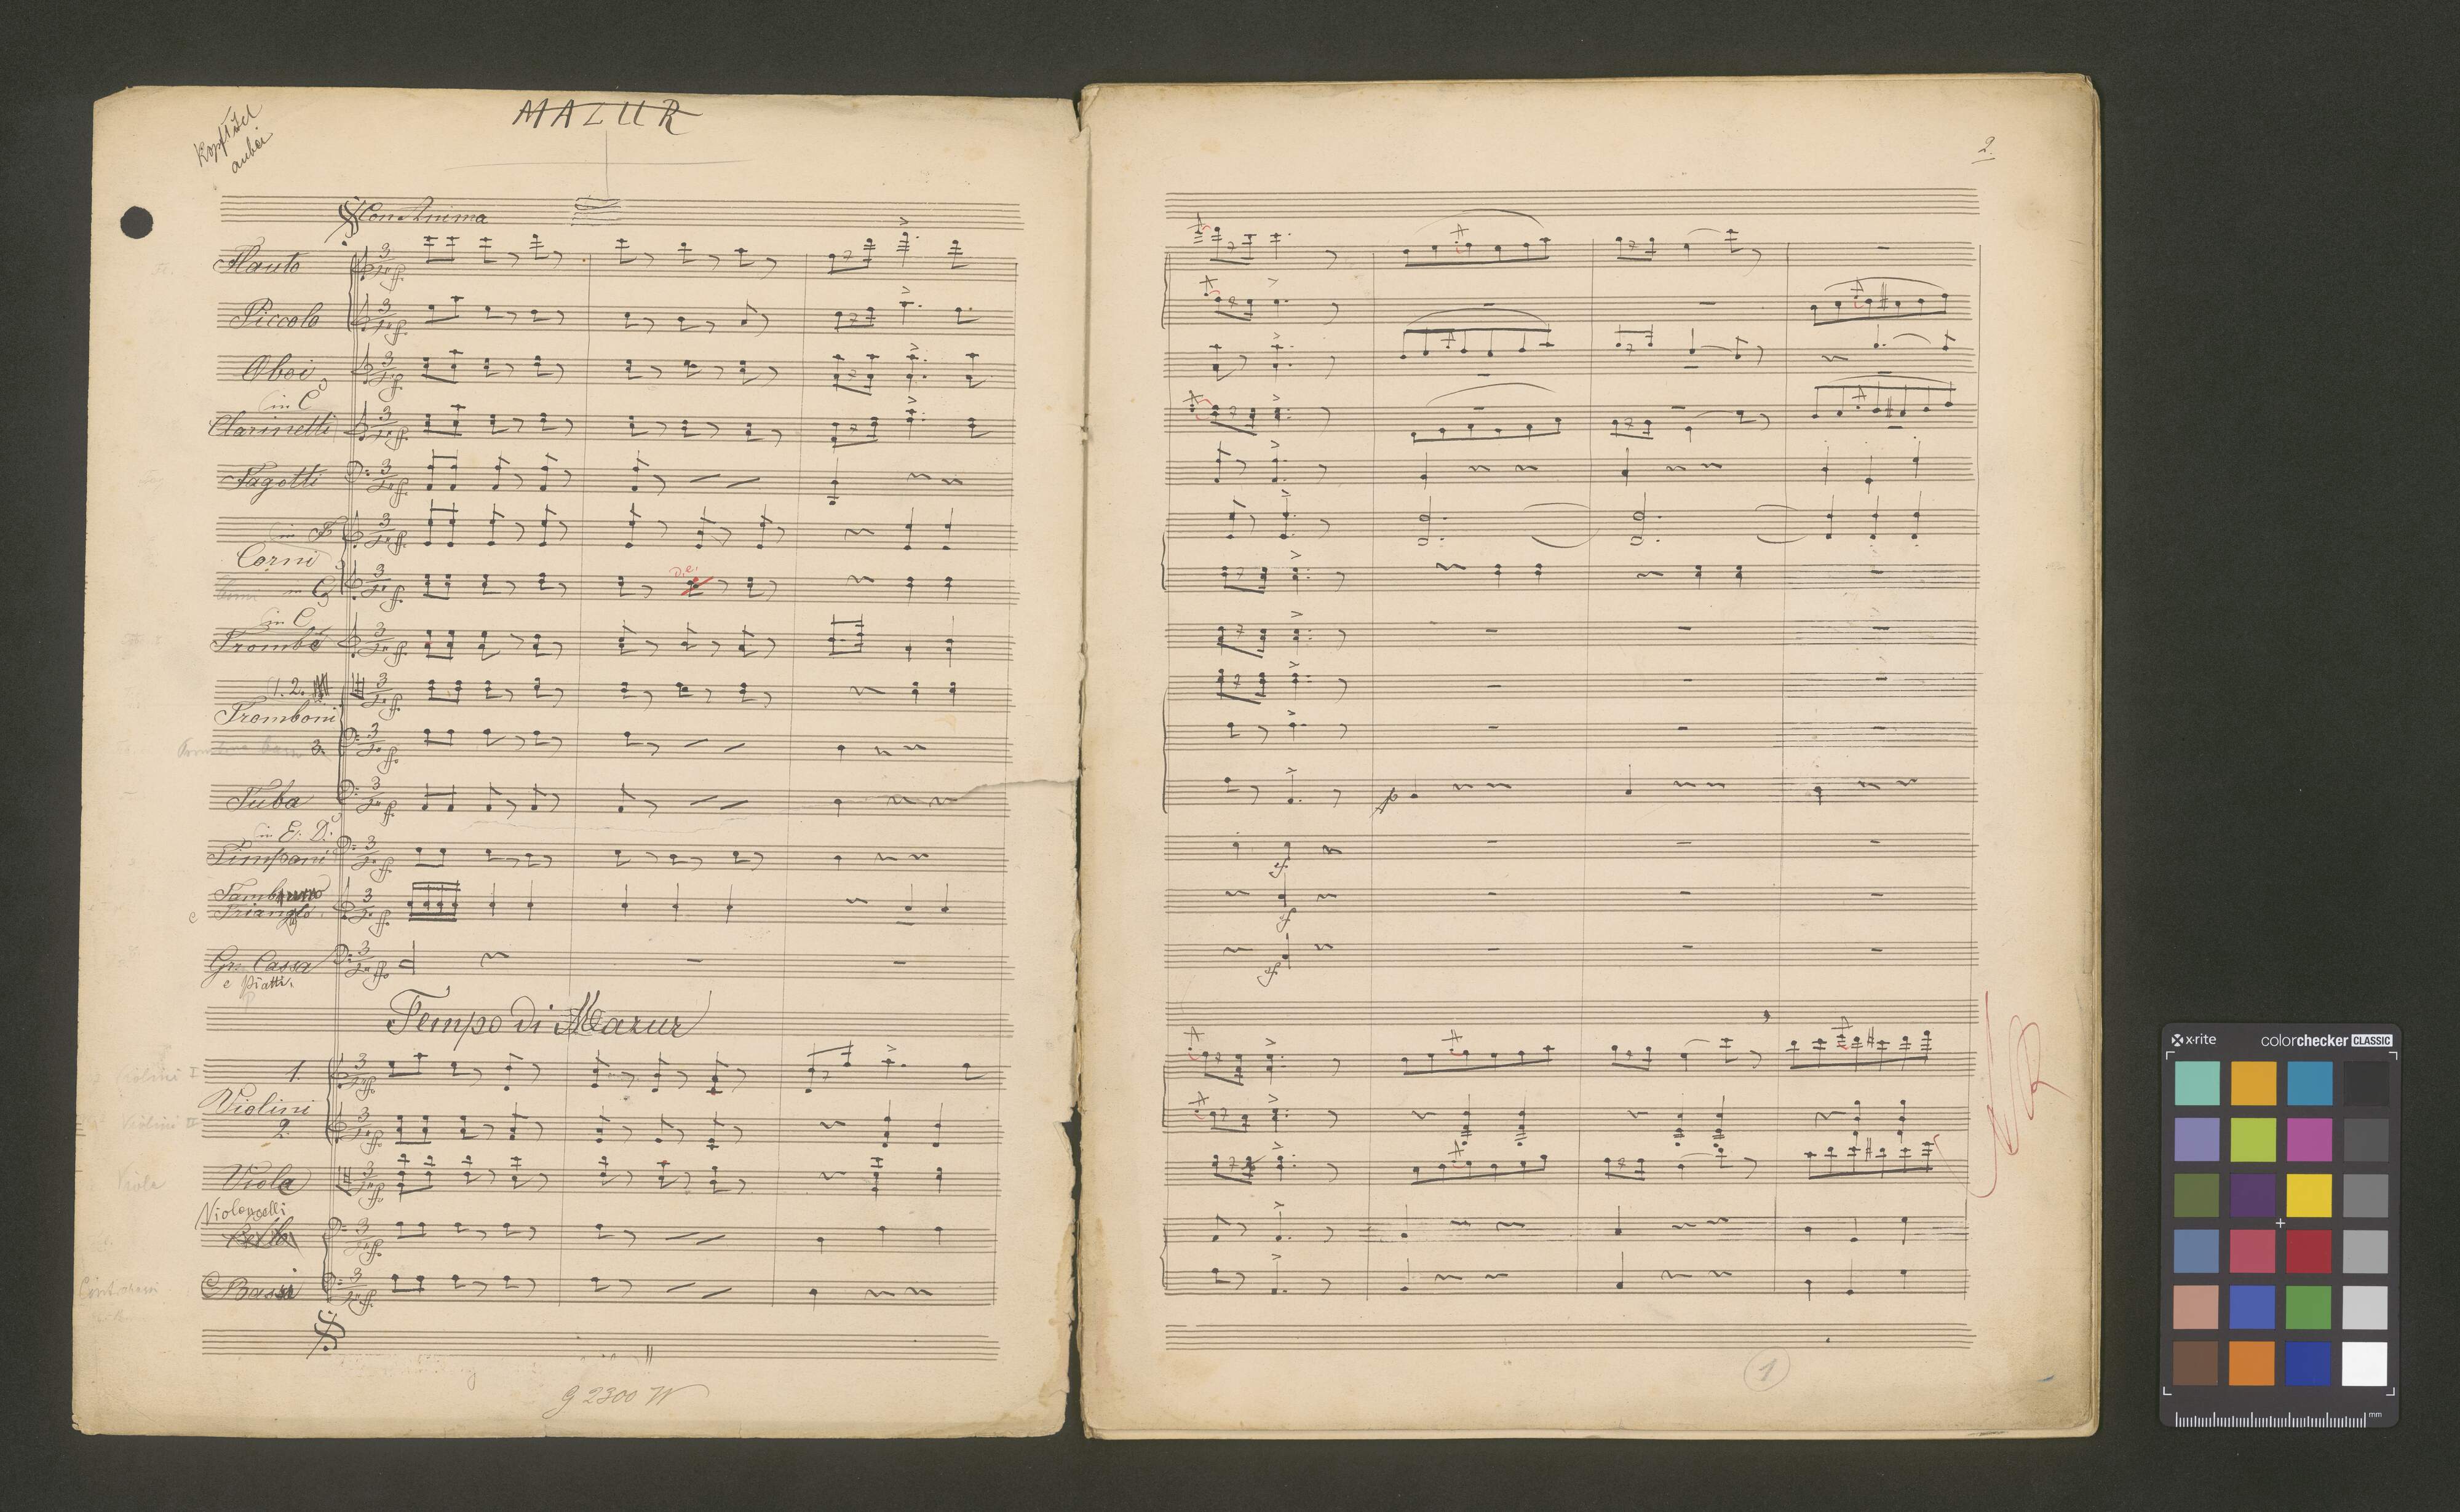 Kopftitel
anbei
MAZUR
Con Anima
Flauto
Piccolo
Oboi
in C
Clarinetti
Fagotti
in F
Corni
in G
in C
Trombe
1. 2.
Tromboni
3.
Tuba
in E. D.
Timpani
Tamburo
e Trianglo.
Gr. Cassa
e Piatti.
Tempo di Mazur
1.
Violini I
Violini
2.
Violini II
Viola
Viola
Violoncelli
C Bassi
g 2300 W
2.
1
x-rite
colorchecker CLASSIC
mm